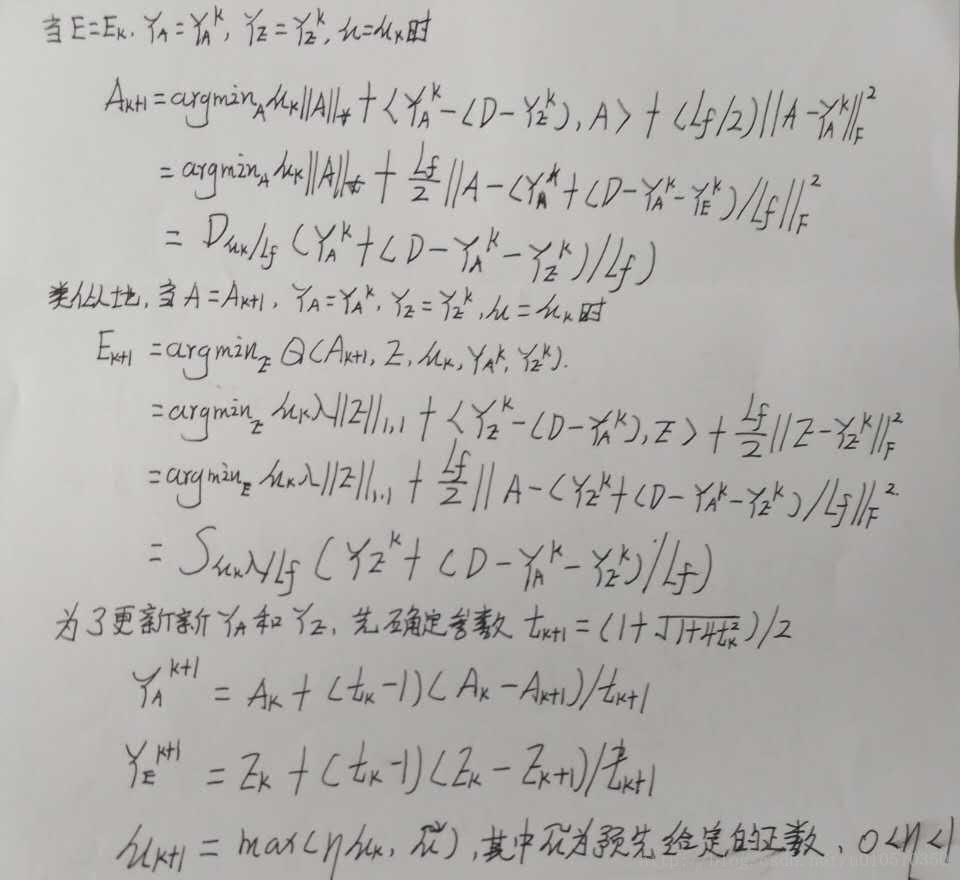 当 E=E_k, Y_A=Y_A^k, Y_Z=Y_Z^k, μ=μ_k时
A_{k+1}=argmin_A μ_k||A||_* + <Y_A^k-(D-Y_Z^k), A> + (L_f/2)||A-Y_A^k||_F^2
=argmin_A μ_k||A||_* + L_f/2 ||A-(Y_A^k+(D-Y_A^k-Y_E^k)/L_f||_F^2
= D_{μ_k/L_f} (Y_A^k+(D-Y_A^k-Y_Z^k)/L_f)
类似地, 当 A=A_{k+1}, Y_A=Y_A^k, Y_Z=Y_Z^k, μ=μ_k时
E_{k+1} =argmin_Z Q(A_{k+1}, Z, μ_k, Y_A^k, Y_Z^k).
=argmin_Z μ_kλ||Z||_{1,1} + <Y_Z^k-(D-Y_A^k), Z> + L_f/2 ||Z-Y_Z^k||_F^2
=argmin_E μ_kλ||Z||_{1,1} + L_f/2 ||A-(Y_Z^k+(D-Y_A^k-Y_Z^k)/L_f||_F^2.
= S_{μ_kλ/L_f} (Y_Z^k+(D-Y_A^k-Y_Z^k)/L_f)
为了更新新 Y_A 和 Y_Z, 先确定参数 t_{k+1}=(1+√(1+4t_k^2))/2
Y_A^{k+1} = A_k+(t_k-1)(A_k-A_{k+1})/t_{k+1}
Y_E^{k+1} = Z_k+(t_k-1)(Z_k-Z_{k+1})/t_{k+1}
μ_{k+1} = max(ημ_k, μ̃), 其中μ̃为预先给定的正数, 0<η<1